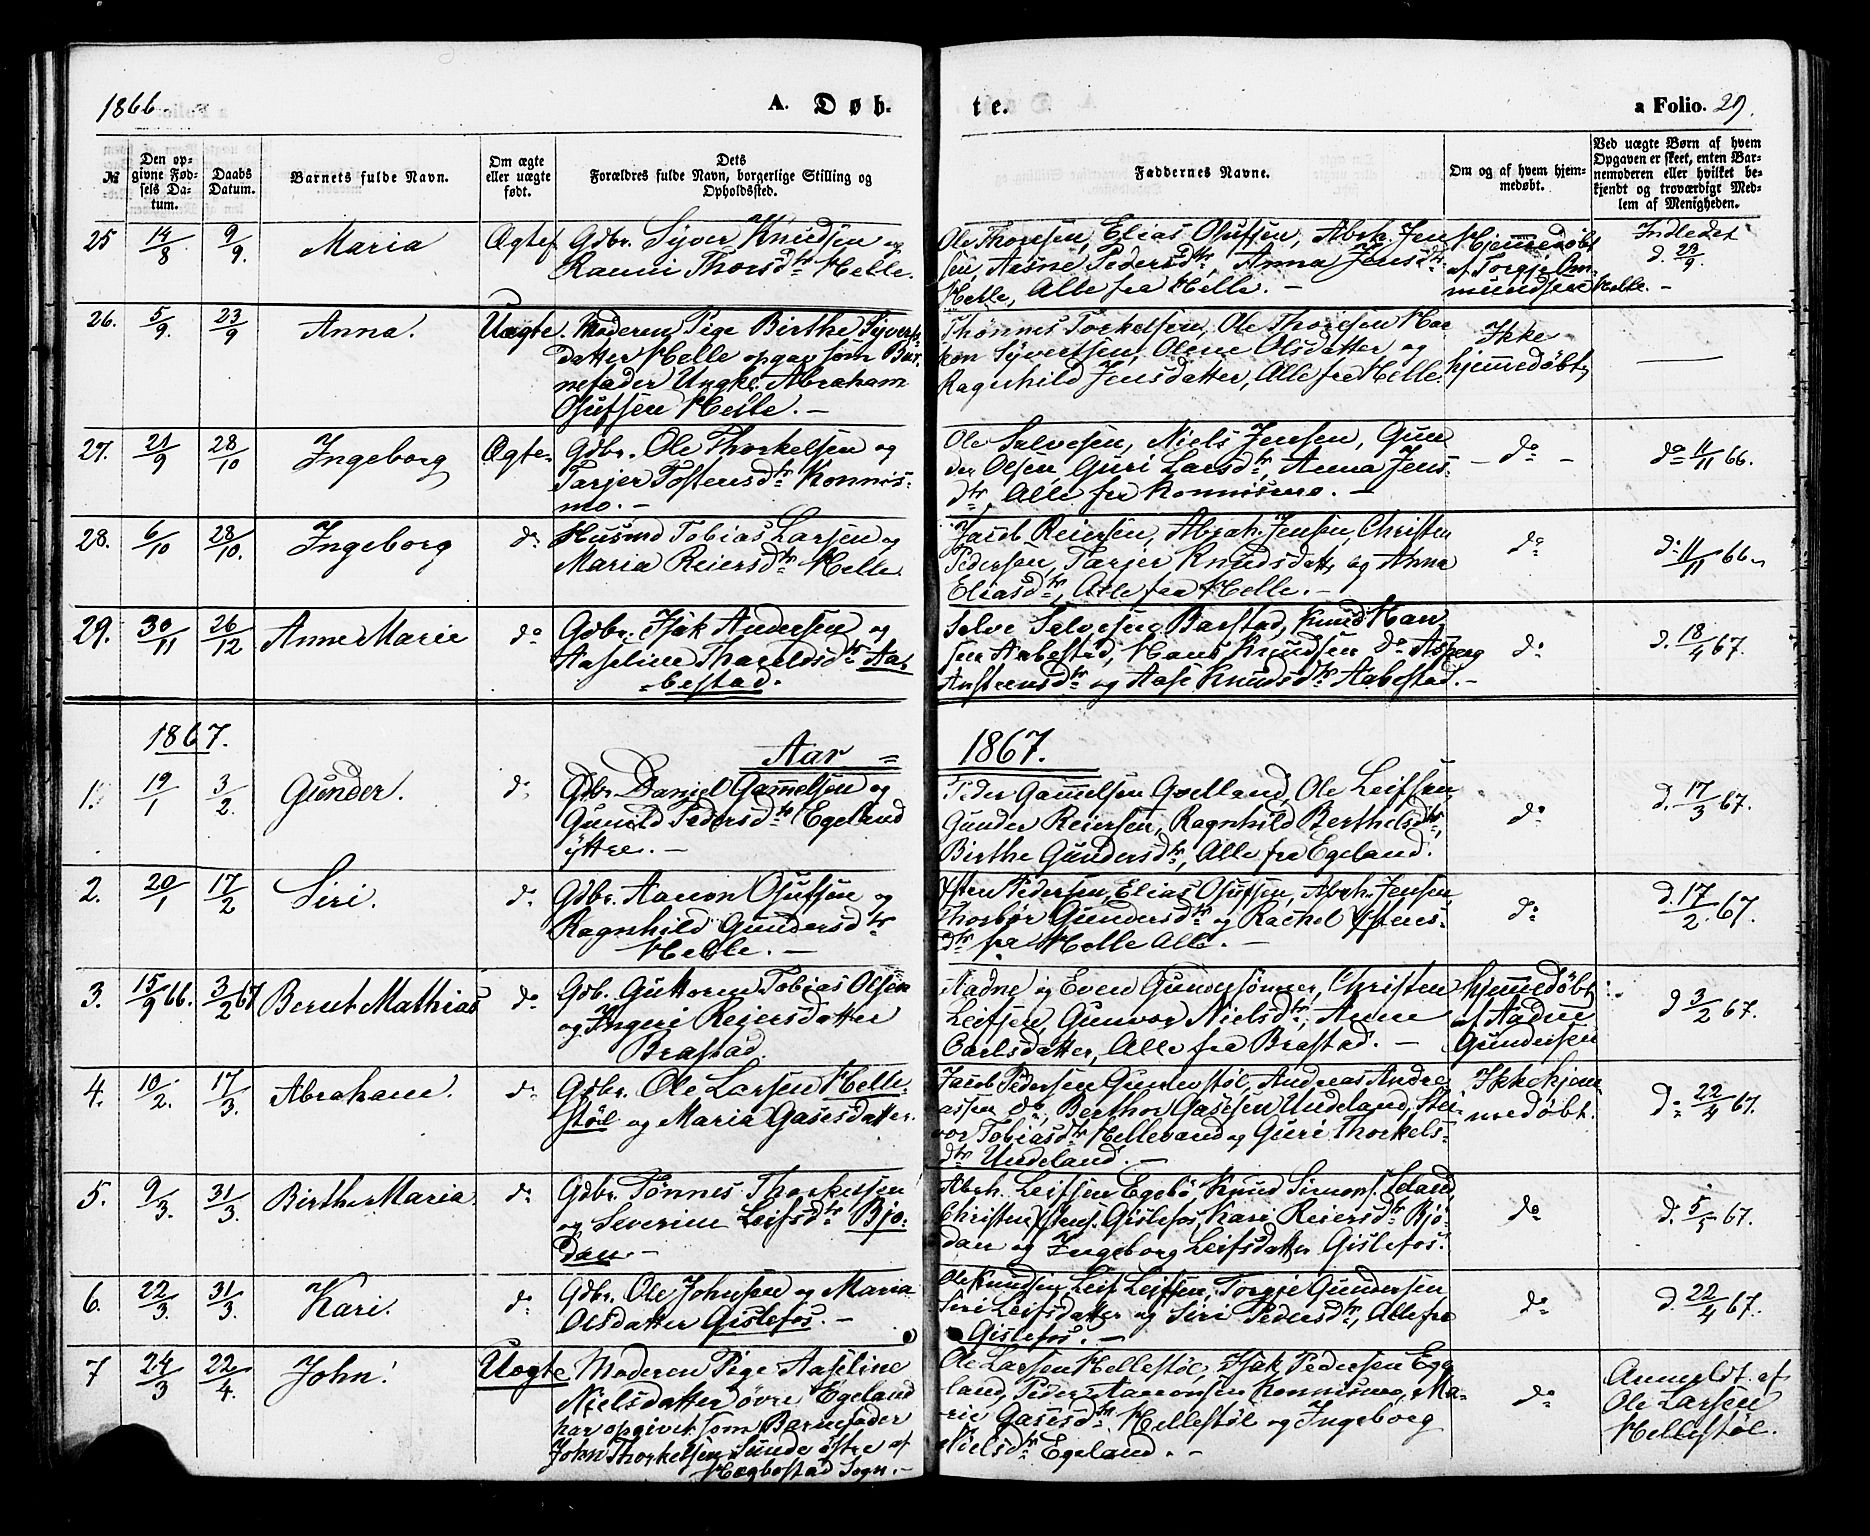 1866
A. Døb-
te.
a Folio. 29.
№
Den op-
givne Fød-
sels Da-
tum.
Daabs
Datum.
Barnets fulde Navn.
Om ægte
eller uægte
født.
Dets
Forældres fulde Navn, borgerlige Stilling og
Opholdssted.
Faddernes Navne.
Om og af hvem hjem-
medøbt.
Ved uægte Børn af hvem
Opgaven er skeet, enten Bar-
nemoderen eller hvilket be-
kjendt og troværdigt Med-
lem af Menigheden.
25 14/8 9/9. Maria Ægtef.
Gdbr. Syver Knudsen og
Ranni Thorsdtr Helle.
Ole Thoresen, Elias Olufsen, Abrh. Jen
sen, Aasne Pedersdtr, Anna Jensdtr
Helle, Alle fra Helle. -
Hjemmedøbt
af Torgje Om-
mundsen Helle. -
Indledet
d. 23/9.
26. 5/9. 23/9 Anna. Uægte.
Moderen Pige Birthe Syverts
datter Helle opgav som Bar-
nefader Ungk. Abraham
Olufsen Helle. -
Thønnes Torkelsen, Ole Thoresen Haa
kon Syvertsen, Olene Olsdatter og
Ragnhild Jensdatter, Alle fra Helle.
Ikke
hjemmedøbt
27. 21/9 28/10 Ingeborg Ægte.
Gdbr. Ole Thorkelsen og
Tarjer Tostensdtr Konnis-
mo. -
Ole Salvesen, Niels Jensen, Gun
der Olsen, Guri Larsdtr, Anna Jens-
dtr, Alle fra Konnismo. -
- do -
do 11/11 66.
28. 6/10 28/10. Ingeborg do
Husmd Tobias Larsen og
Maria Reiersdtr Helle.
Jacob Reiersen, Abrah. Jensen, Christen
Pedersen, Tarjer Knudsdatter og Anna
Eliasdtr, Alle fra Helle. -
do
d. 11/11 66.
29. 30/11 26/12 Anne Marie do
Gdbr. Isak Andersen og
Aaseline Tharaldsdtr Aa-
bestad.
Salve Salvesen Barstad, Knud Han
sen Aabestad, Hans Knudsen do Asberg
Anstensdtr og Aase Knudsdtr Aabestad. -
do
d. 18/4 67.
1867.
Aar =
1867.
1. 19/1 3/2. Gunder. do
Gdbr. Daniel Gamelsen og
Gunild Pedersdtr Egeland
yttre. -
Peder Gamelsen Qvelland, Ole Leifsen,
Gunder Reiersen, Ragnhild Berthelsdtr,
Birthe Gundersdtr, Alle fra Egeland.
do
d. 17/3 67.
2. 20/1 17/2 Siri. do
Gdbr. Aanon Olufsen og
Ragnhild Gundersdtr
Helle. -
Østen Pedersen, Elias Olufsen, Abrh. Jensen,
Thorbor Gundersdtr og Rachel Østens-
dtr fra Helle Alle. -
do
d. 17/2. 67.
3. 15/9 66. 3/2 67 Bernt Mathias do
Gdb. Guttorm Tobias Olsen
og Ingeri Reiersdatter
Brastad.
Aadne og Even Gundersønner, Christen
Leifsen, Gunvor Nielsdtr, Anne
Carlsdatter, Alle fra Brastad. -
hjemmedøbt
af Aadne
Gundersen
d 3/2 67.
4. 10/2. 17/3. Abraham. do
Gdbr. Ole Larsen Helle-
støl og Maria Gasesdatter.
Jacob Pedersen Gunnestøl, Andreas Andre
assen do, Berthor Gasesen Undeland, Stei-
vor Tobiasdtr Hellevand og Guri Thorkels-
dtr Undeland. -
Ikke hjem-
medøbt.
do 22/4 67.
5. 9/3. 31/3. Birthe Maria do
Gdbr. Tønnes Thorkelsen
og Severine Leifsdtr Bjo-
dan -
Abrh. Leifsen Egebø, Knud Simons. Seland,
Christen Østens. Gislefos, Kari Reiersdtr Bjo-
dan og Ingeborg Leifsdatter Gislefos.
do
d. 5/5 67.
6. 22/3. 31/3. Kari. do
Gdbr. Ole Johnsen og Maria
Olsdatter Gislefos. -
Ole Knudsen, Leif Leifsen, Torgje Gundersen
Siri Leifsdatter og Siri Pedersdtr, Alle fra
Gislefos. -
do
d. 22/4 67.
7 24/3 22/4. John. Uægte
Moderen Pige Aaseline
Nielsdatter øvre Egeland
har opgivet som Barnefader
John Thorkelsen Sunde østre af
Hægbostad Sogn. -
Ole Larsen Hellestøl, Isak Pedersen Ege
land, Peder Aanonsen Konnismo, Ma-
rie Gasesdtr Hellestøl og Ingeborg
Nielsdtr Egeland. -
do
Anmeldt af
Ole Larsen
Hellestøl.